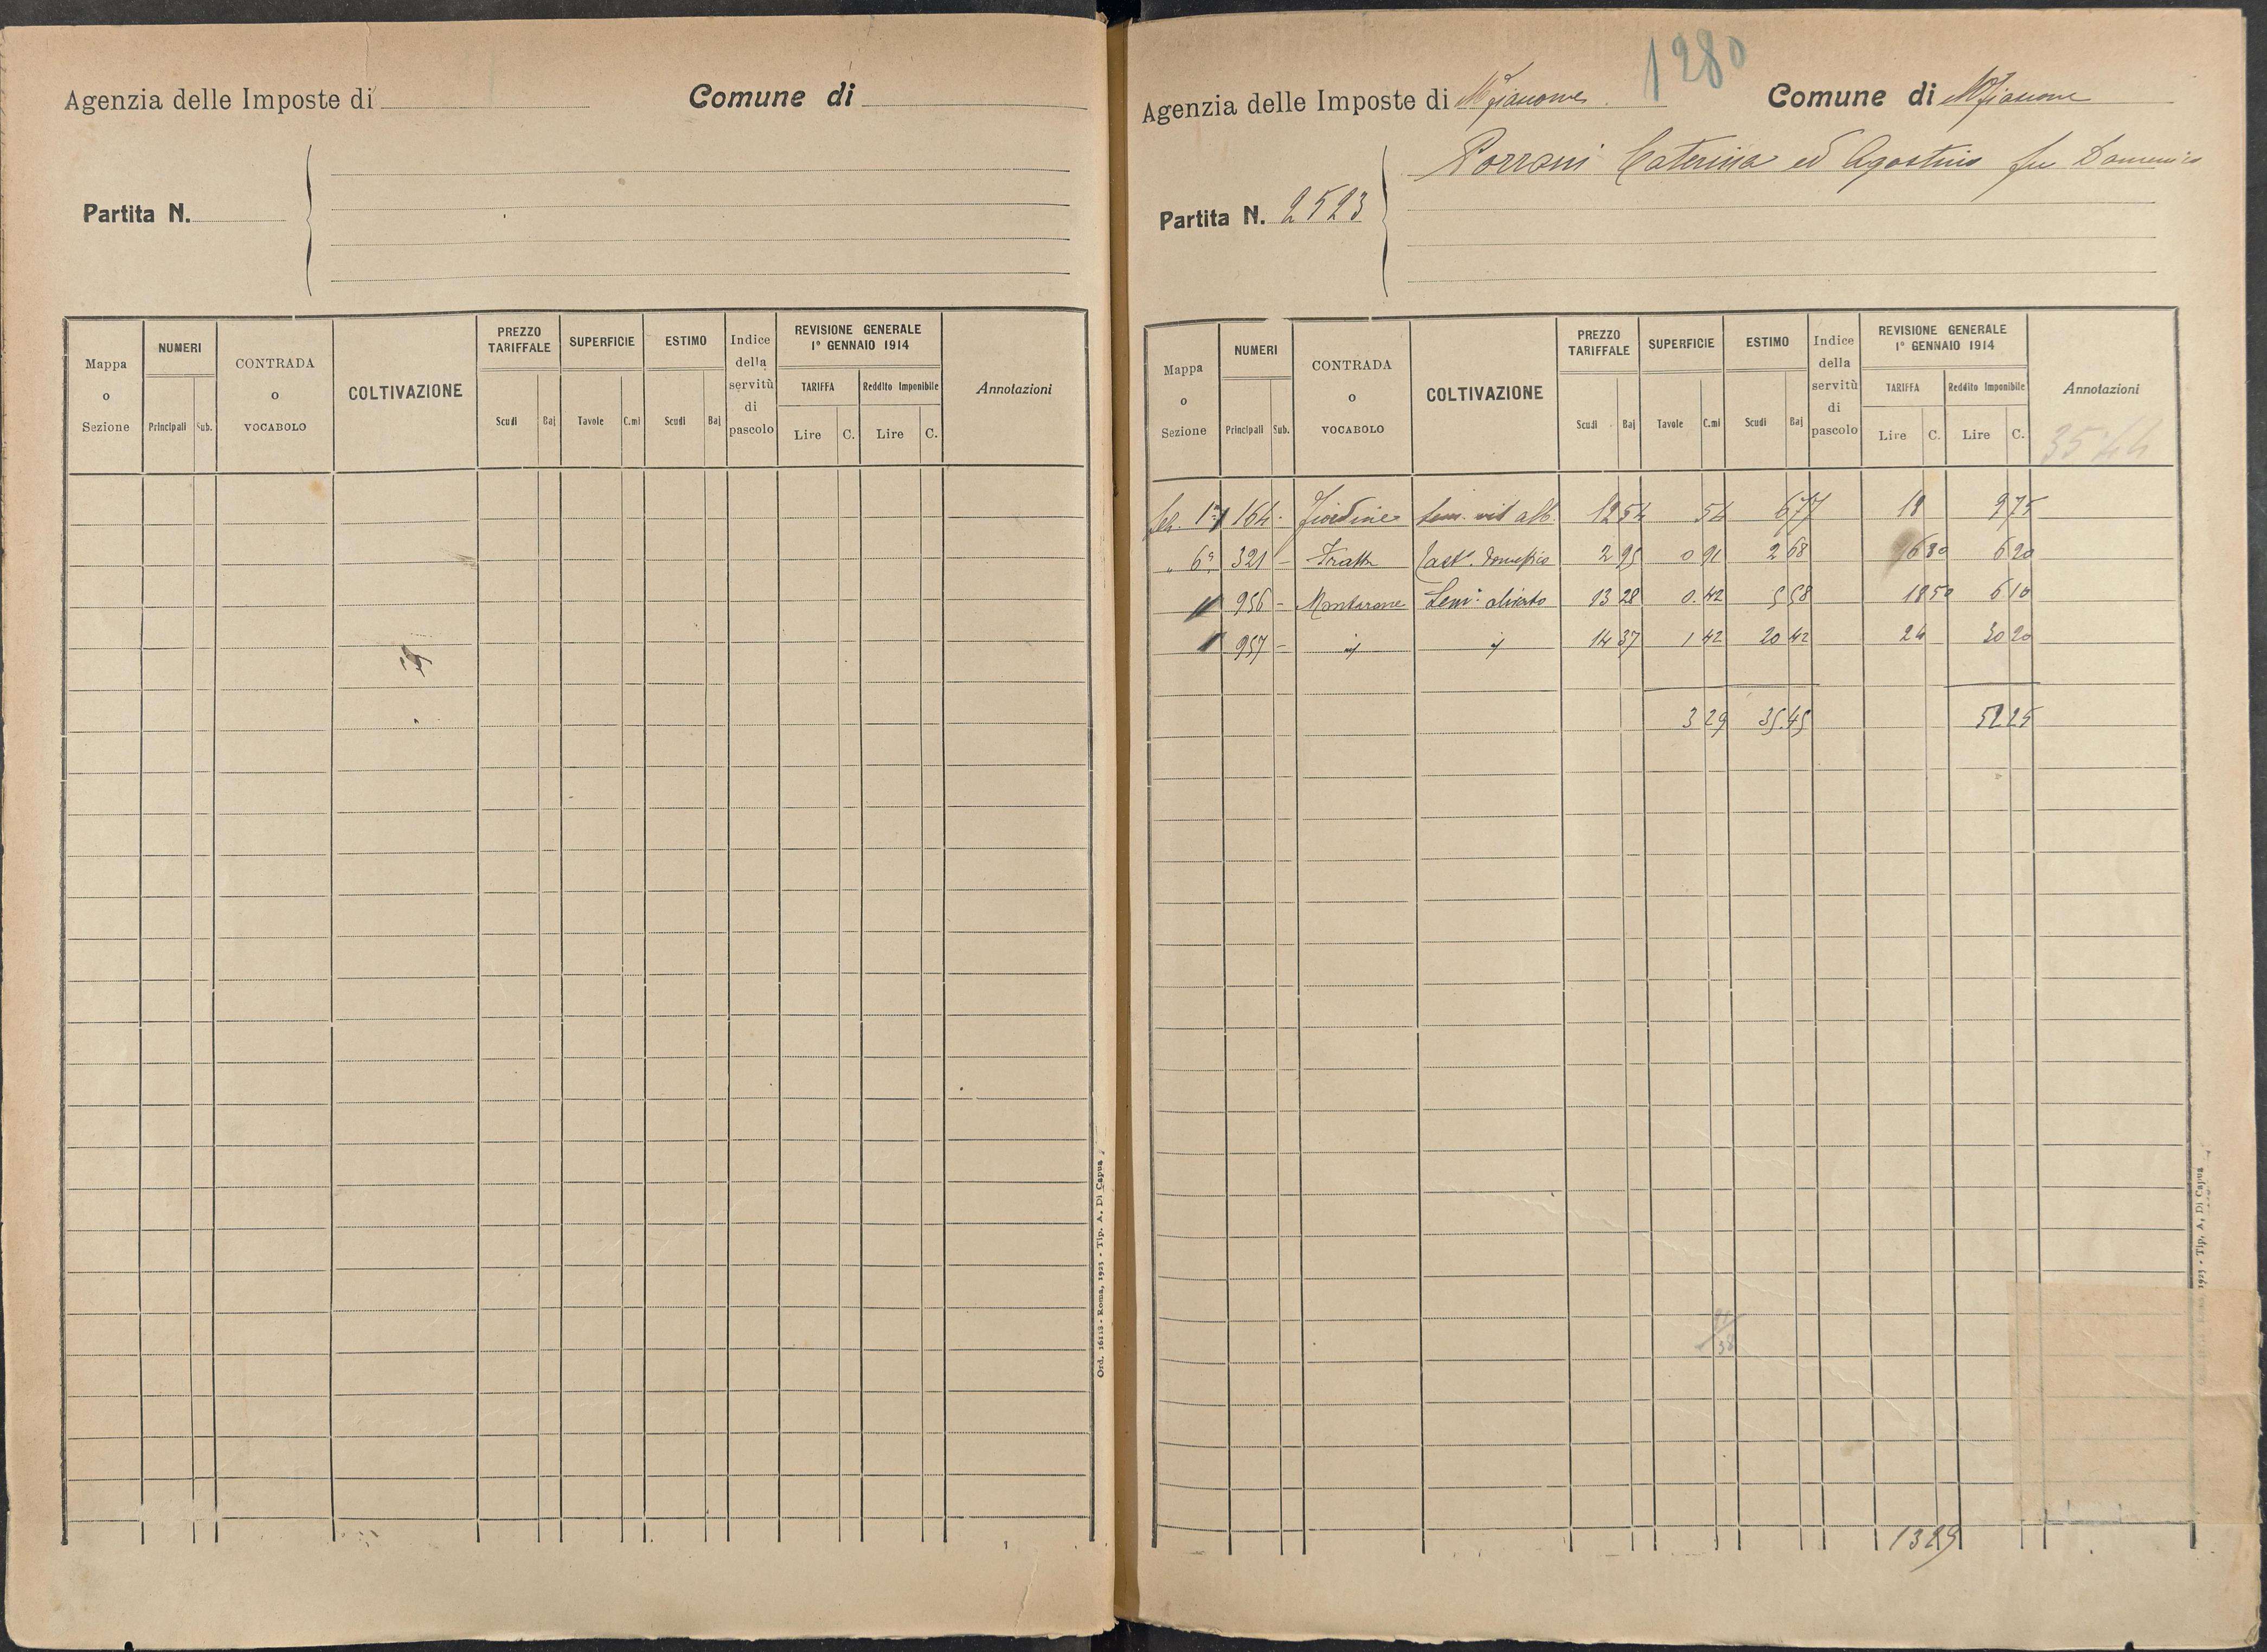 Agenzia delle Imposte di
Comune di
Partita N.
Mappa o Sezione
NUMERI
Principali Sub.
CONTRADA o VOCABOLO
COLTIVAZIONE
PREZZO TARIFFALE
Scudi Baj
SUPERFICIE
Tavole C.mi
ESTIMO
Scudi Baj
Indice della servitù di pascolo
REVISIONE GENERALE
1° GENNAIO 1914
TARIFFA
Lire C.
Reddito Imponibile
Lire C.
Annotazioni
Ord. 16118 - Roma, 1923 - Tip. A. Di Capua
1280
Agenzia delle Imposte di Mfiascone
Comune di Mfiascone
Porroni Caterina ed Agostino fu Domenico
Partita N. 2523
Mappa o Sezione
NUMERI
Principali Sub.
CONTRADA o VOCABOLO
COLTIVAZIONE
PREZZO TARIFFALE
Scudi Baj
SUPERFICIE
Tavole C.mi
ESTIMO
Scudi Baj
Indice della servitù di pascolo
REVISIONE GENERALE
1° GENNAIO 1914
TARIFFA
Lire C.
Reddito Imponibile
Lire C.
Annotazioni
35 44
Sez. 1ª 164 Fiordine Sem. vit alb. 12 54 54 6 77 18 9 75
" 6ª 321 - Fratta Cast. domestico 2 95 0 91 2 68 6 80 6 20
956 - Montarone Sem. olivato 13 28 0.42 5 58 18 50 6 10
957 - 14 37 1 42 20 42 24 30 20
3 29 35.45 52 25
1923 - Tip. A. Di Capua
1329